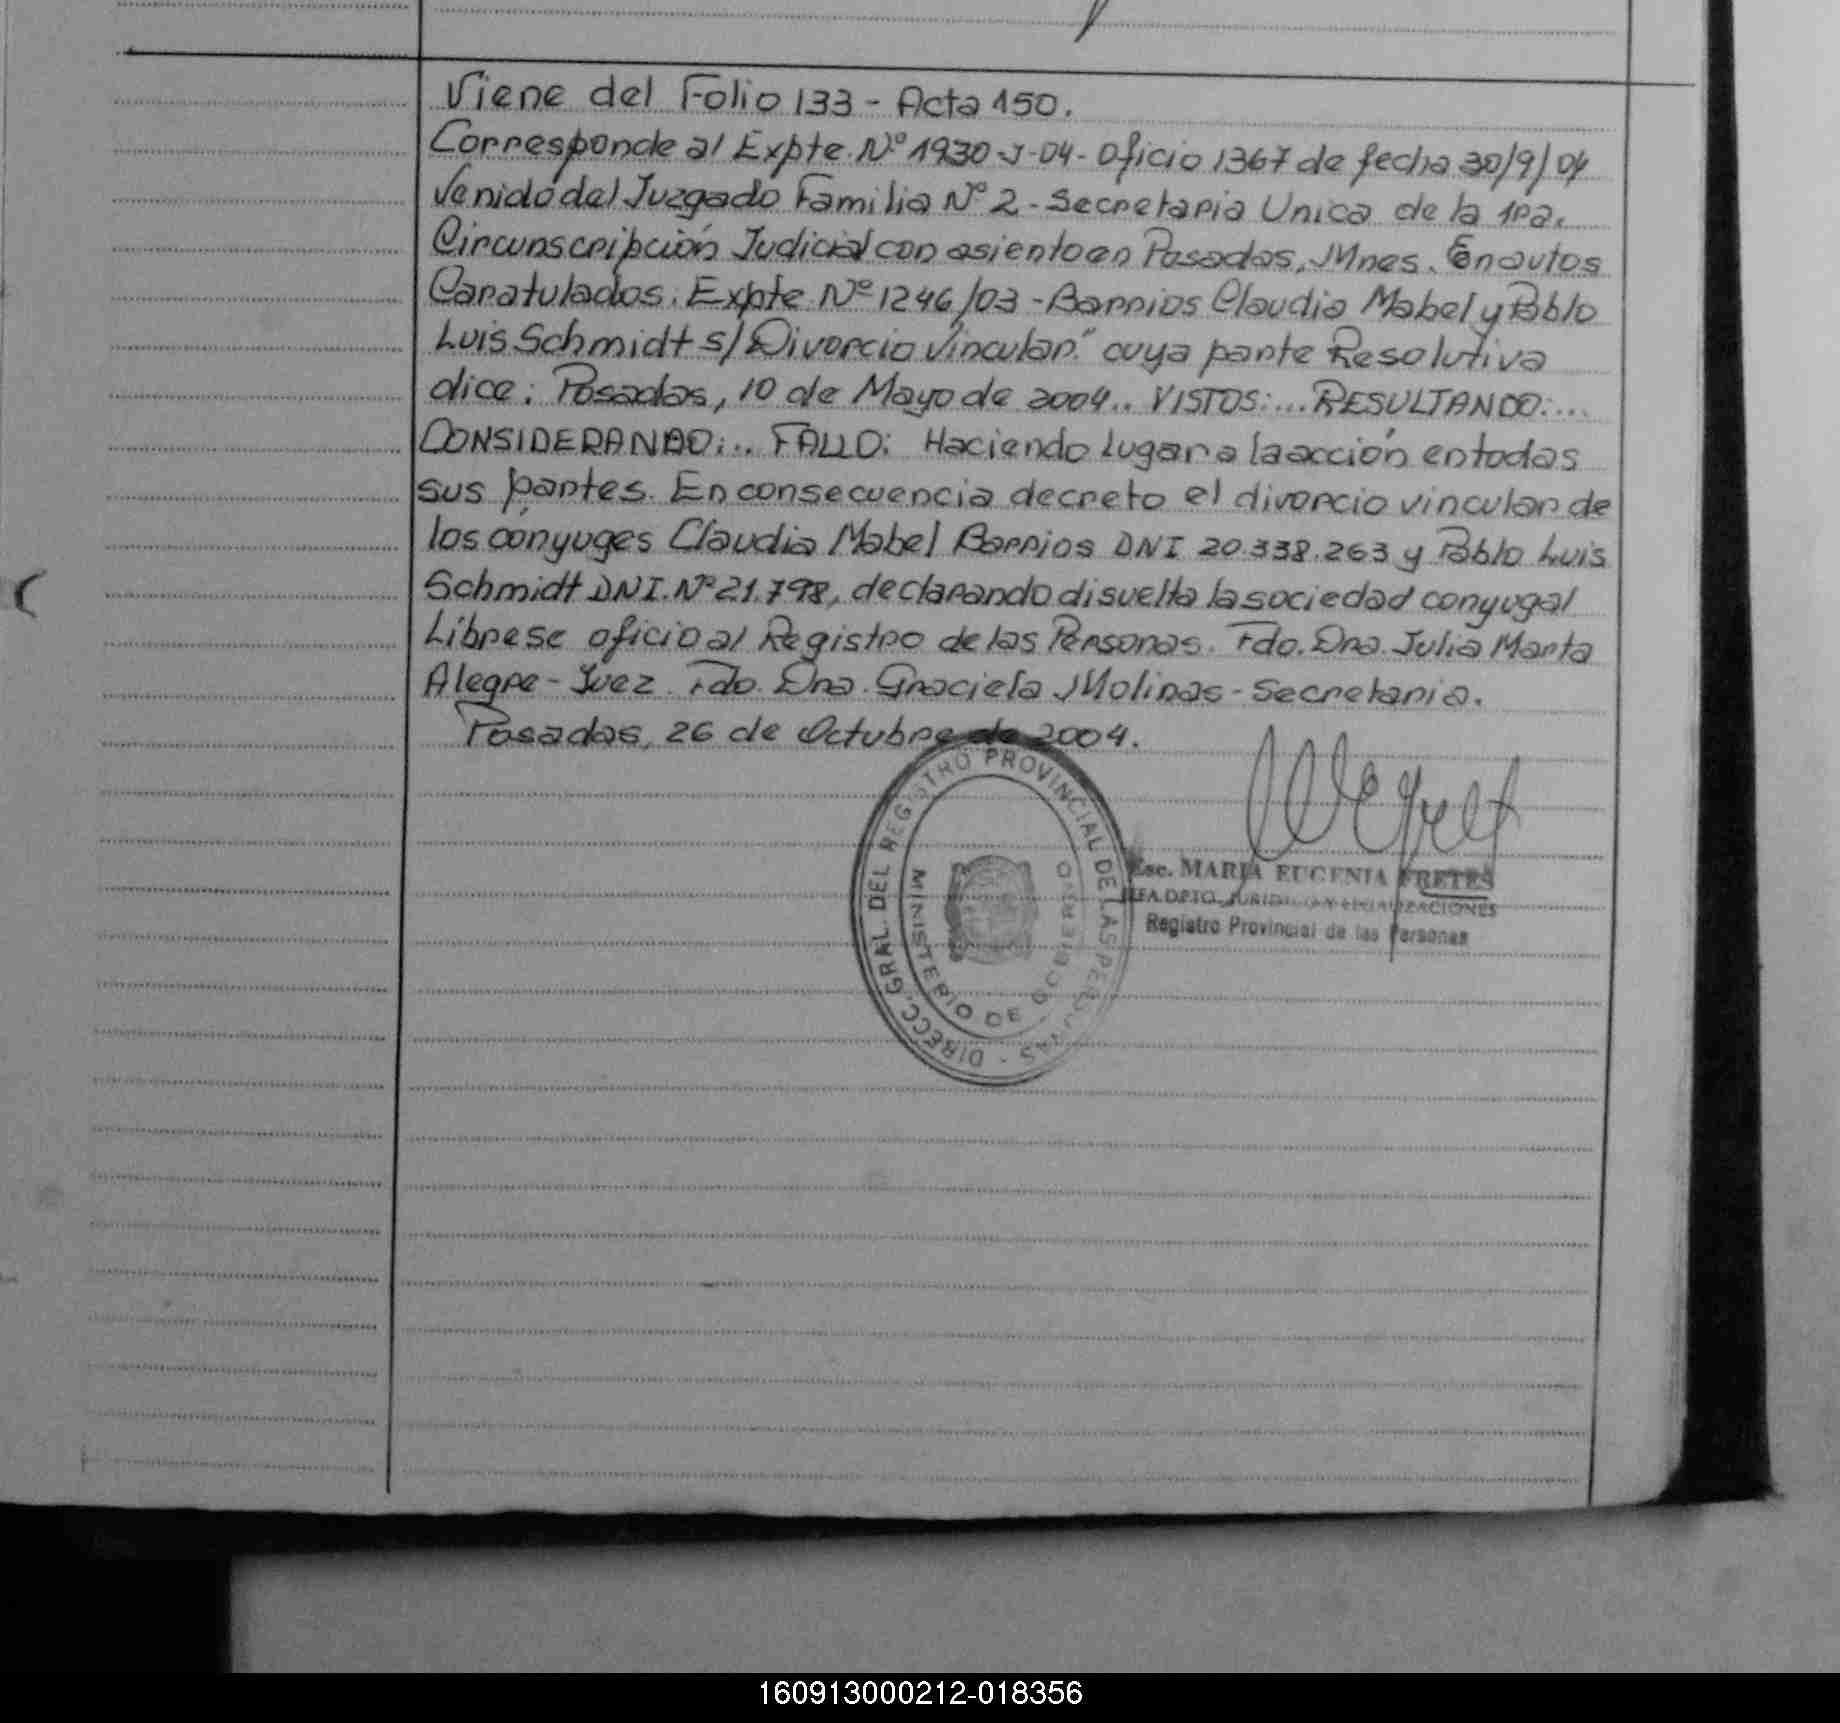 Viene del Folio 133 - Acta 150.
Corresponde al Expte. Nº 1930-J-04- Oficio 1367 de fecha 30/9/04
Venido del Juzgado Familia Nº 2 - Secretaria Unica de la 1ra.
Circunscripción Judicial con asiento en Posadas, Mnes. En autos
Caratulados: Expte. Nº 1246/03 - Barrios Claudia Mabel y Pablo
Luis Schmidt s/ Divorcio Vincular." cuya parte Resolutiva
dice: Posadas, 10 de Mayo de 2004.. VISTOS:... RESULTANDO:...
CONSIDERANDO:... FALLO: Haciendo lugar a la acción en todas
sus partes. En consecuencia decreto el divorcio vincular de
los cónyuges Claudia Mabel Barrios DNI 20.338.263 y Pablo Luis
Schmidt DNI. Nº 21.798, declarando disuelta la sociedad conyugal
Líbrese oficio al Registro de las Personas. Fdo. Dra. Julia Marta
Alegre - Juez. Fdo. Dra. Graciela Molinas - Secretaria.
Posadas, 26 de Octubre de 2004.
DIRECC. GRAL. DEL REGISTRO PROVINCIAL DE LAS PERSONAS -
MINISTERIO DE GOBIERNO
Esc. MARIA EUGENIA FRETES
JEFA DPTO. JURIDICO Y LEGALIZACIONES
Registro Provincial de las Personas
160913000212-018356